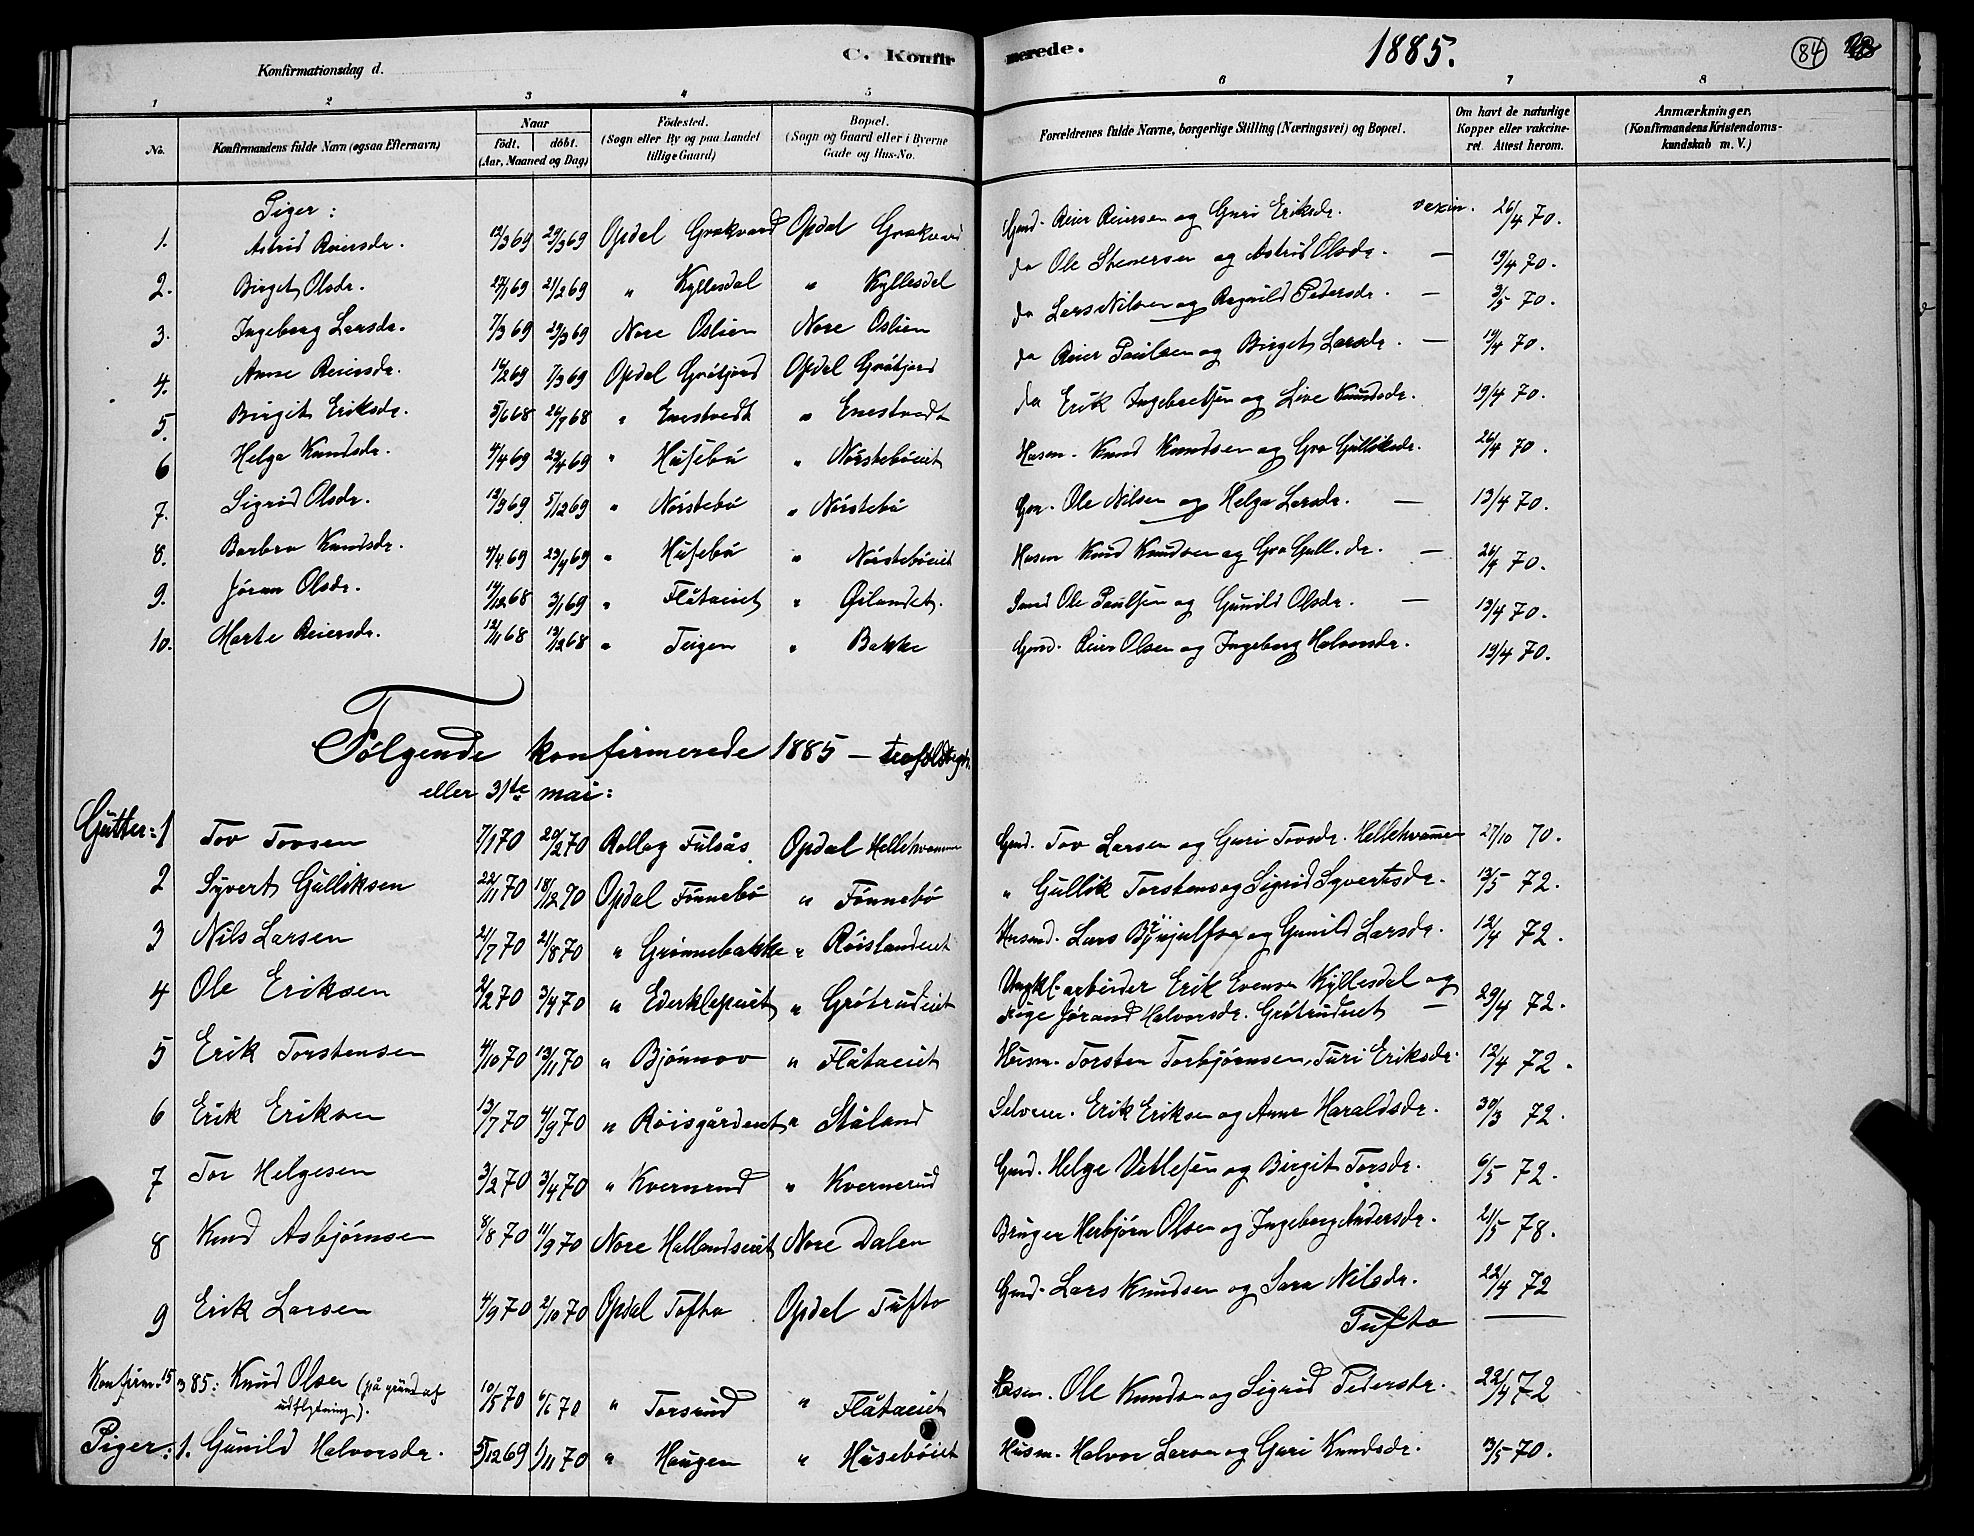 C. Konfirmerede. 1885. 84
Konfirmationsdag d.
1 2 3 4 5 6 7 8
No. Konfirmandens fulde Navn (ogsaa Efternavn) Naar født, døbt. (Aar, Maaned og Dag) Fødested. (Sogn eller By og paa Landet tillige Gaard) Bopæl. (Sogn og Gaard eller i Byerne Gade og Hus-No. Forældrenes fulde Navne, borgerlige Stilling (Næringsvei) og Bopæl. Om havt de naturlige Kopper eller vakcineret. Attest herom. Anmærkninger. (Konfirmandens Kristendomskundskab m. V.)
Piger:
1. Astrid Reiersdr. 12/3 69 29/3 69 Opdal Grøkvard Opdal Grøkvard Gmd. Reier Reiersen og Guri Eriksdr. vaxin. 26/4 70.
2. Birget Olsdr. 27/1 69 21/2 69 " Kyllesdal " Kyllesdal do Ole Stenersen og Astrid Olsdr. — 19/4 70.
3. Ingeborg Larsdr. 7/3 69 29/3 69 Nore Oslien Nore Oslien do Lars Nilsen og Ragnild Pedersdr. — 3/5 70.
4. Anne Reiersdr. 14/2 69 7/3 69 Opdal Grøtjord Opdal Grøtjord do Reier Paulsen og Birget Larsdr. — 19/4 70.
5. Birgit Eriksdr. 5/6 68 26/7 68 " Enestvedt " Enestvedt do Erik Ingebretsen og Live Knudsdr. 19/4 70.
6 Helga Knudsdr. 4/4 69 29/4 69 " Húsebø " Nørstebøeiet Husm. Knud Knudsen og Gro Gulliksdr. 26/4 70.
7. Sigrid Olsdr. 12/9 69 5/12 69 " Nørstebø " Nørstebø Ole Nilsen og Helga Larsdr. — 13/4 70.
8. Barbro Knudsdr. 4/4 69 29/4 69 " Húsebø " Nørstebøeiet Husm Knud Knudsen og Gro Gull.dr. — 26/4 70.
9. Jøran Olsdr. 14/12 68 3/1 69 " Flåtaeiet " Øilandet. Ole Paulsen og Gunild Olsdr. — 13/4 70.
10. Marte Reiersdr. 12/11 68 13/12 68 " Teigen " Bakke Gmd. Reier Olsen og Ingeborg Halvorsdr. 19/4 70.
Følgende konfirmerede 1885 —
eller 31te mai:
Gutter: 1 Tov Tovsen 7/1 70 20/2 70 Rollag Fulsås Opdal Hellehvammen Gmd. Tov Larsen og Guri Tovsdr. Hellehvammen 27/10 70.
2 Syvert Gulliksen 22/11 70 18/12 70 Opdal Fønnebø " Fønnebø " Gullik Torstens og Sigrid Syvertsdr. 13/5 72.
3 Nils Larsen 21/7 70 21/8 70 " Grønnebakke " Røislandeiet Husmd. Lars og Gunild Larsdr. 12/4 72.
4 Ole Eriksen 2/2 70 3/4 70 " Ederklepeiet " Grøtrudeiet Ungkl. arbeider Erik Evensen Kyllesdal og
Pige Jørand Halvorsdr. Grøtrudeiet — 29/4 72.
5 Erik Torstensen 4/10 70 13/11 70 " Bjönnov " Flåtaeiet Husm. Torsten Torbjørnsen, Turi Eriksdr. 12/4 72.
6 Erik Eriksen 13/7 70 4/9 70 " Røisgårdeiet " Ståland Selveier. Erik Eriksen og Anne Haraldsdr. 30/3 72.
7 Tor Helgesen 3/2 70 3/4 70 " Kvernrud " Kvernerud Gmd. Helge Vetlesen og Birgit Torsdr. 6/5 72.
8 Knud Asbjørnsen 8/8 70 11/9 70 Nore Hallandseiet Nore Dalen Bruger Herbjørn Olsen og Ingeborg Andersdr. 21/5 78.
9 Erik Larsen 4/9 70 2/10 70 Opdal Tofto Opdal Tufto Gmd. Lars Knudsen og Sara Nilsdr. 22/4 72
Tufto —
Konfirm. 15/3 85: Knud Olsen (på grund af udflytning). 10/5 70 6/6 70 " Torsrud " Flåtaeiet Husm. Ole Knudsen og Sigrid Pedersdr. 22/4 72
Piger: 1. Gunild Halvorsdr. 5/12 69 1/11 70 " Haugen " Húsebøeiet Husm. Halvor Larsen og Guri Knudsdr. 13/5 70.